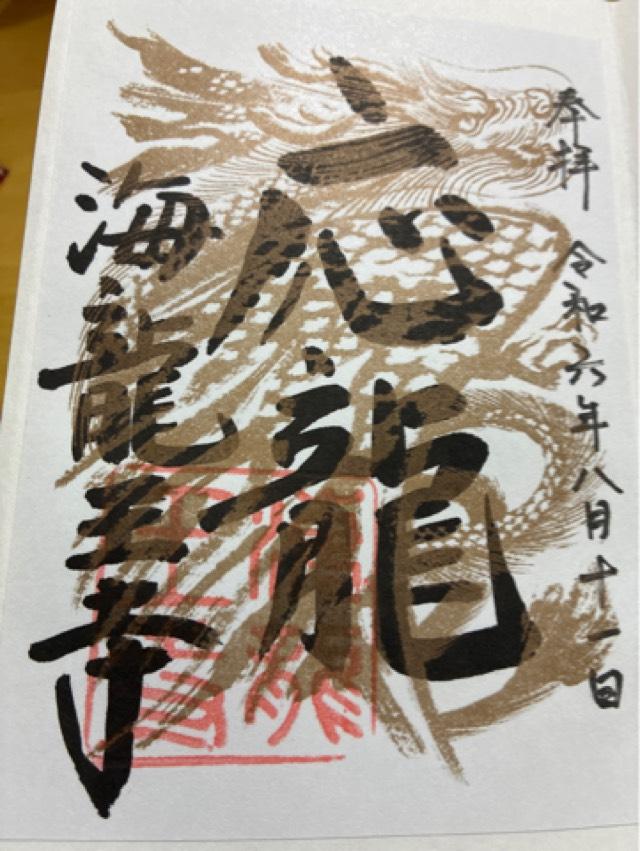 奉拝 令和六年八月十一日
応龍
海龍王寺